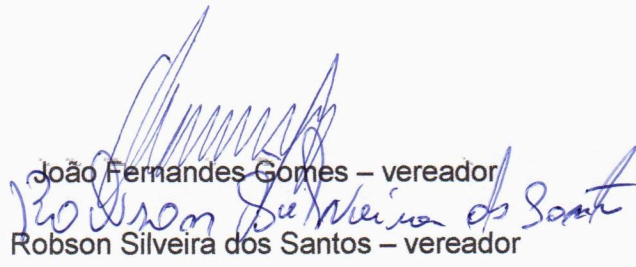 João Fernandes Gomes – vereador
Robson Silveira do Santos
Robson Silveira dos Santos – vereador